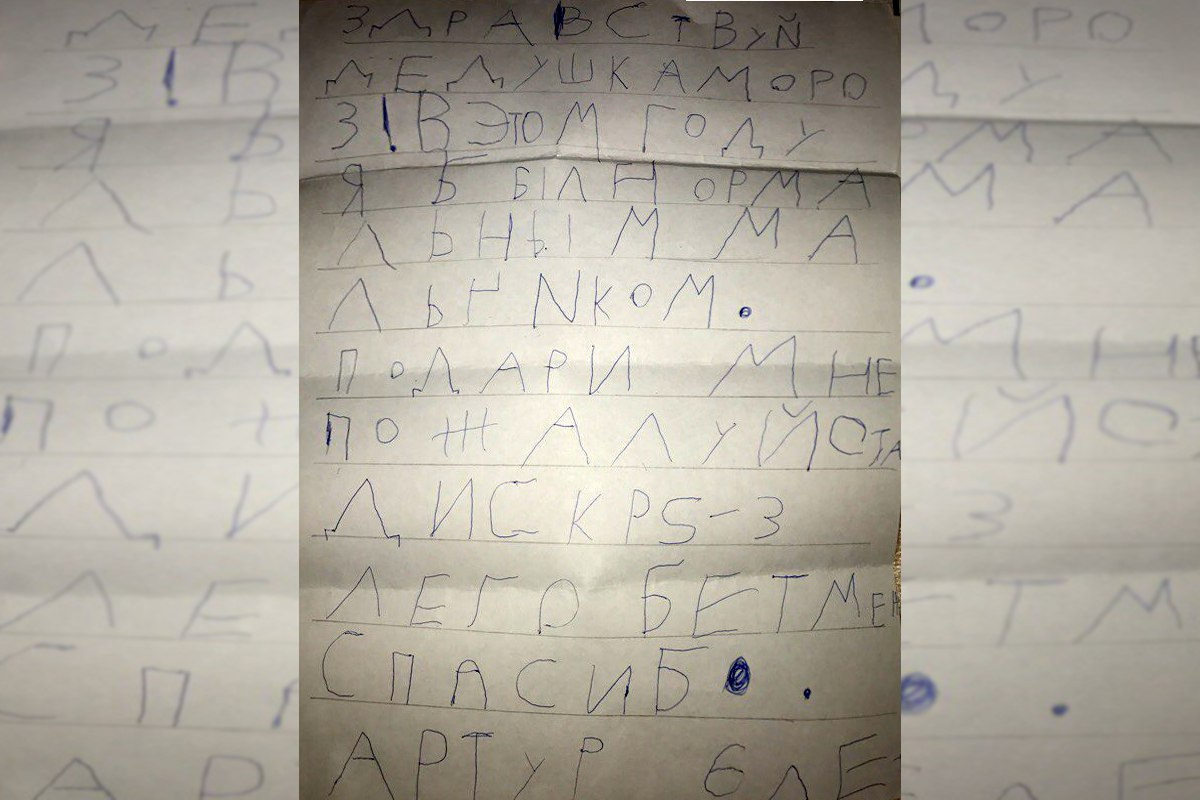 ЗДРАВСТВУЙ
ДЕДУШКАМОРО
З!ВЭТОМ ГОДУ
Я Б БІЛНОРМА
ЛЬНЫМ МА
ЛЬНИКОМ.
ПОДАРИ МНЕ
ПОЖАЛУЙСТА
ДИСК PS-3
ЛЕГО БЕТМЕН
СПАСИБО.
АРТУР 6 ЛЕ